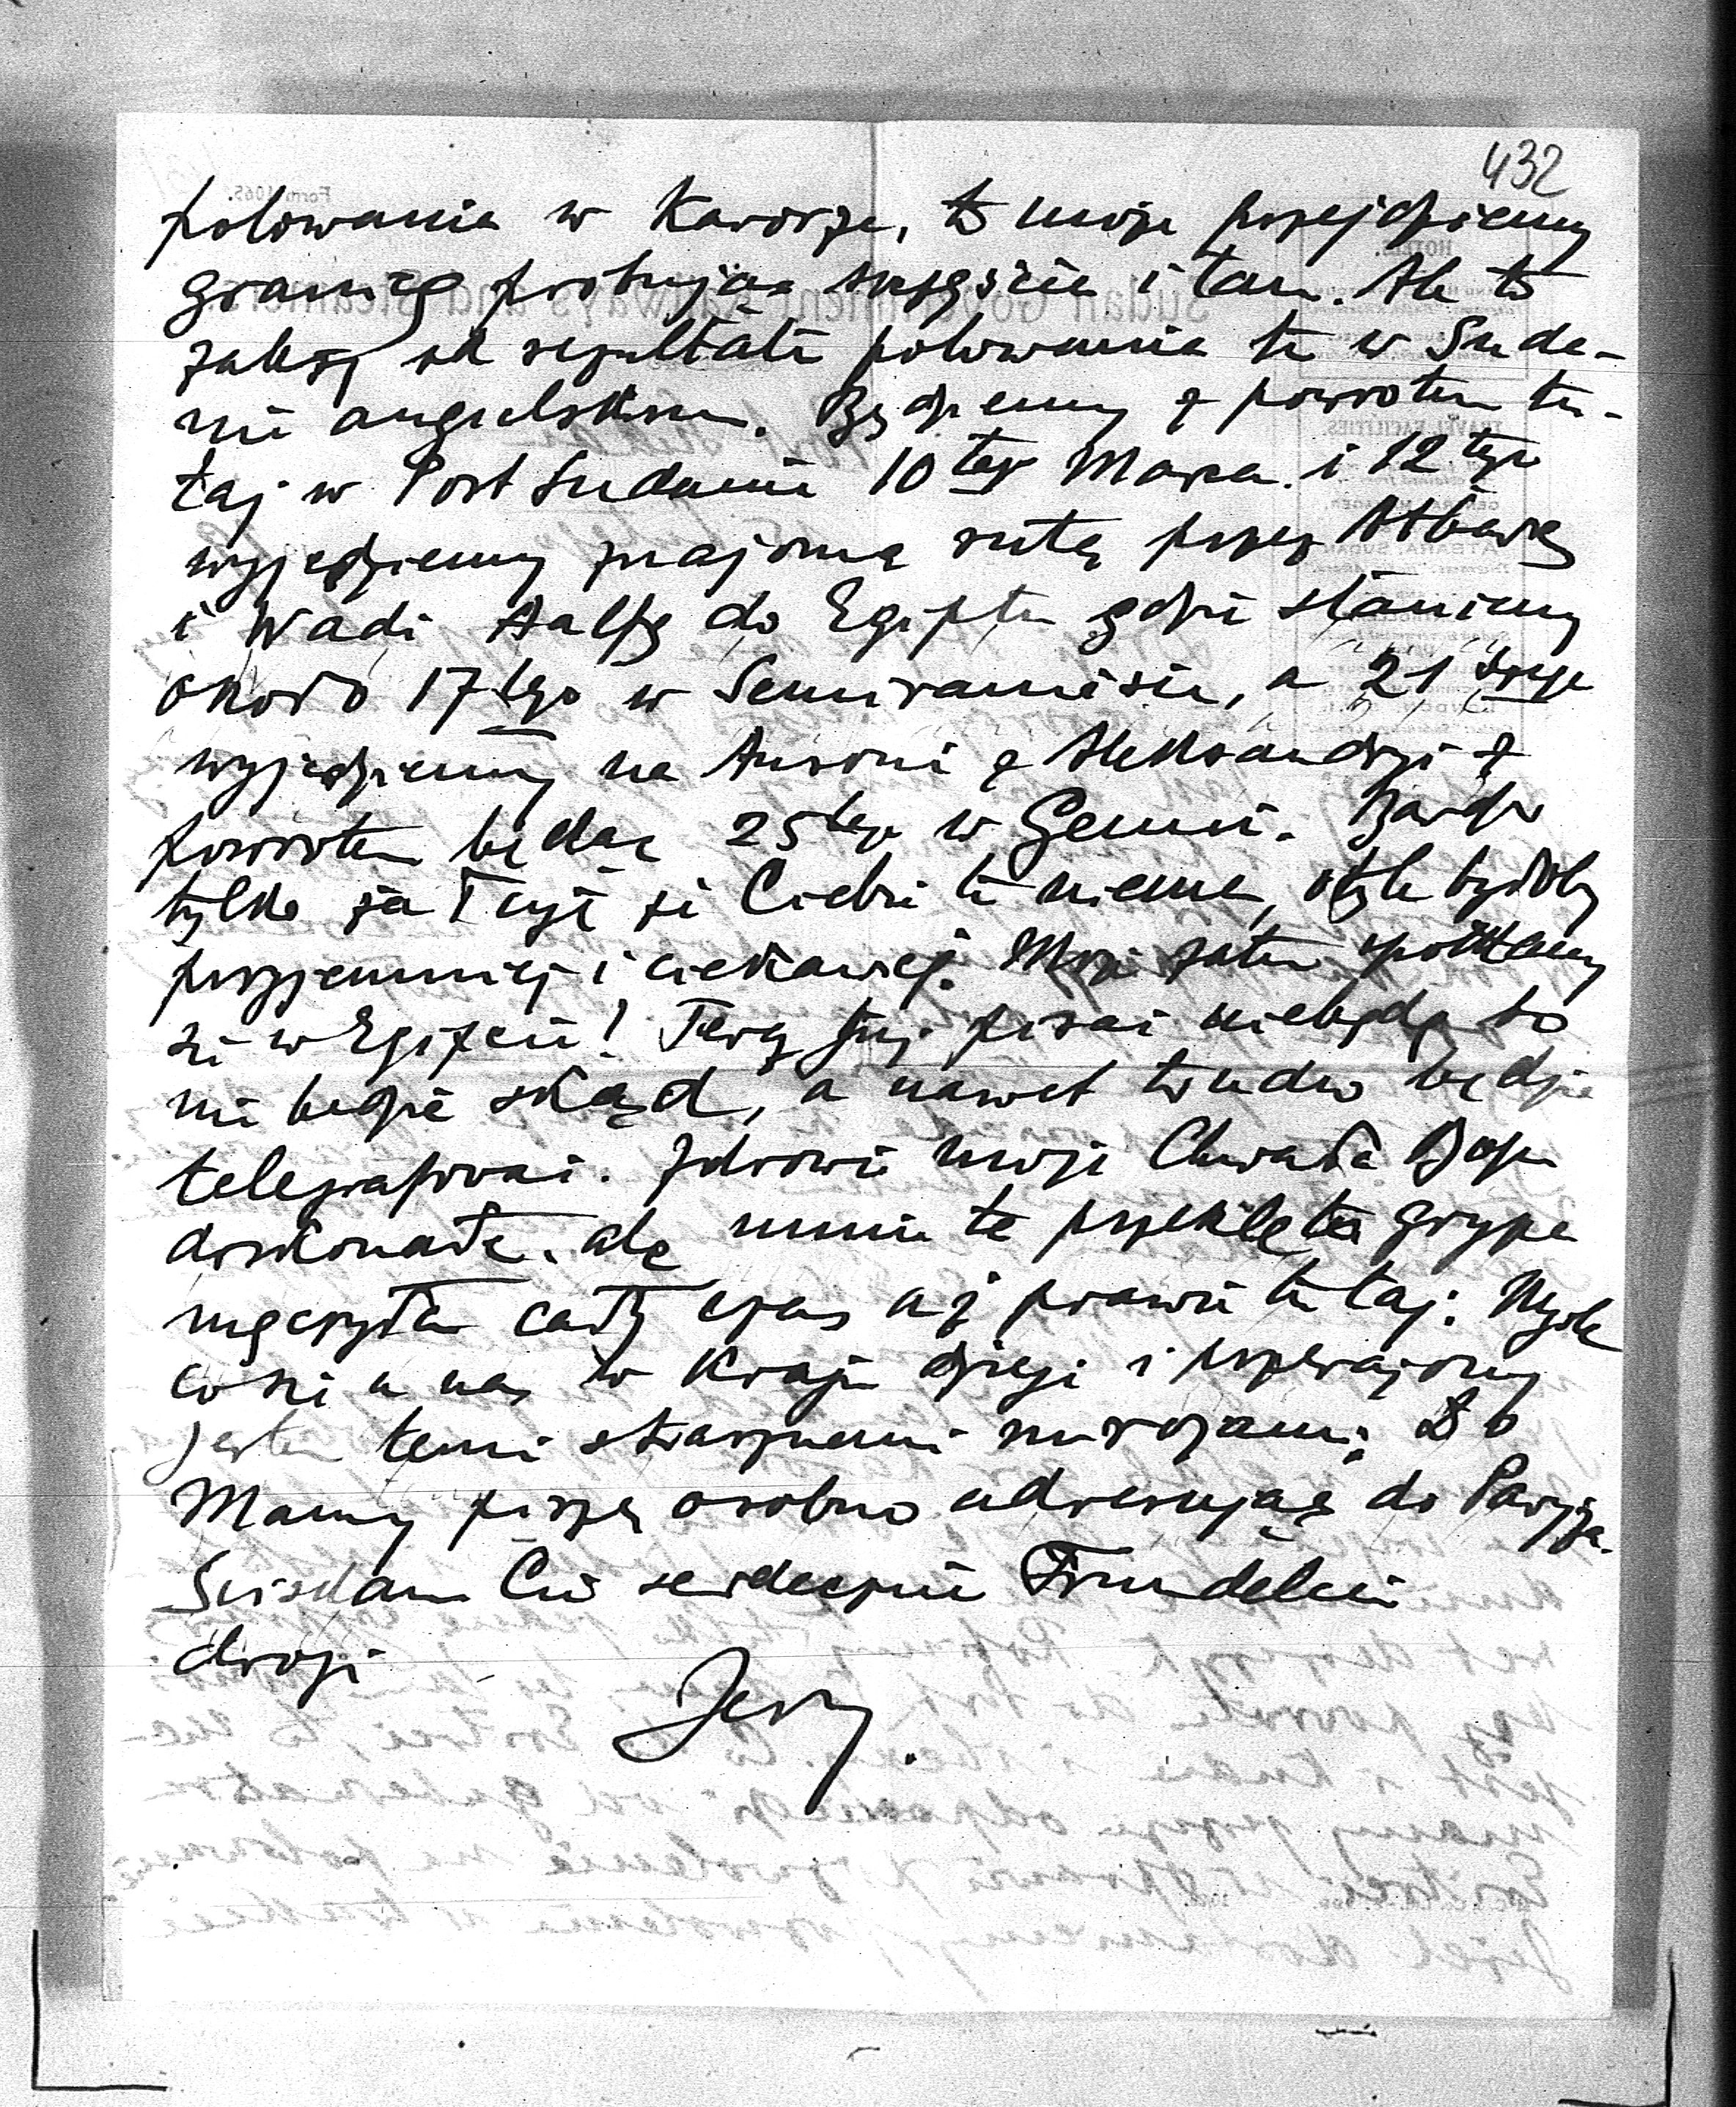 432
polowania w Karorze, to może przejdziemy
granicę próbując szczęścia i tam. Ale to
zależy od rezultatu polowania tu w Suda-
nie angielskim. Będziemy z powrotem tu-
taj w Port Sudanie 10tego Marca i 12tego
wyjedziemy znajomą rutą przez Atbarę
i Wadi Halfę do Egiptu gdzie staniemy
około 17tego w Semiramisie, a 21szego
wyjedziemy na Ausonii z Aleksandryi z
powrotem będąc 25tego w Genui. Bardzo
tylko żałuję że Ciebie tu niema, o tyle byłoby
przyjemniej i ciekawiej. Może zatem spotkamy
się w Egipcie! Teraz już pisać niebędę bo
nie będzie skąd, a nawet trudno będzie
telegrafować. Zdrowie moje Chwała Bogu
doskonałe, ale mnie ta przeklęta grypa
męczyła cały czas aż prawie tutaj. Myślę
co się u nas w Kraju dzieje i przerażony
jestem temi strasznemi mrozami. Do
Mamy piszę osobno adresując do Paryża.
Sciskam Cię serdecznie
drogi
Jerzy.